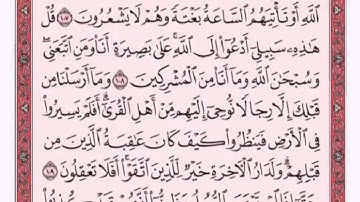 ٱللَّهِ أَوْ تَأْتِيَهُمُ ٱلسَّاعَةُ بَغْتَةً وَهُمْ لَا يَشْعُرُونَ ١٠٧ قُلْ
هَٰذِهِۦ سَبِيلِىٓ أَدْعُوٓا۟ إِلَى ٱللَّهِ عَلَىٰ بَصِيرَةٍ أَنَا۠ وَمَنِ ٱتَّبَعَنِى
وَسُبْحَٰنَ ٱللَّهِ وَمَآ أَنَا۠ مِنَ ٱلْمُشْرِكِينَ ١٠٨ وَمَآ أَرْسَلْنَا مِن
قَبْلِكَ إِلَّا رِجَالًا نُّوحِىٓ إِلَيْهِم مِّنْ أَهْلِ ٱلْقُرَىٰٓ أَفَلَمْ يَسِيرُوا۟
فِى ٱلْأَرْضِ فَيَنظُرُوا۟ كَيْفَ كَانَ عَٰقِبَةُ ٱلَّذِينَ مِن
قَبْلِهِمْ وَلَدَارُ ٱلْءَاخِرَةِ خَيْرٌ لِّلَّذِينَ ٱتَّقَوْا۟ أَفَلَا تَعْقِلُونَ ١٠٩